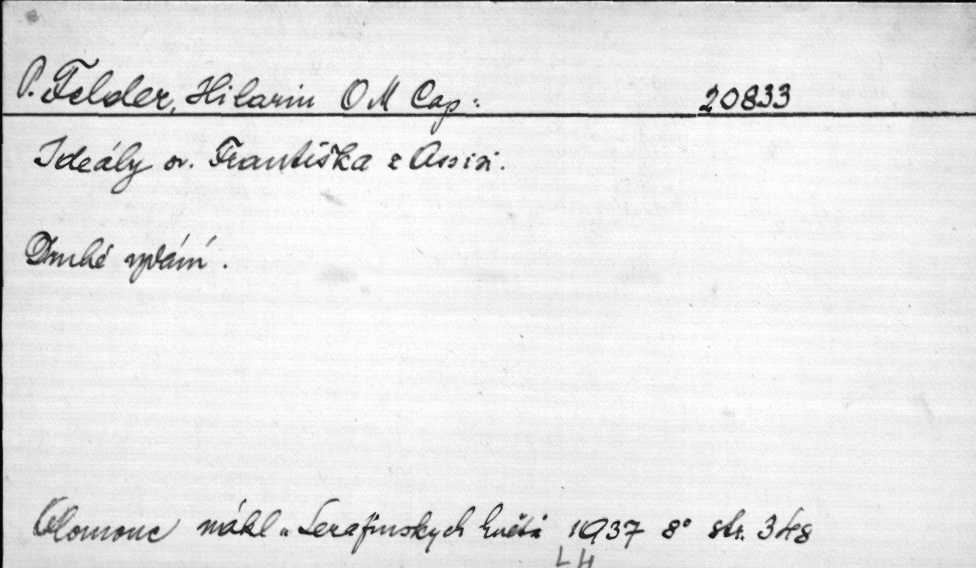 P. Felder, Hilarin O M Cap: 20833
Ideály sv. Františka z Assisi.
Druhé vydání.
Olomouc nákl „Serafínských květů" 1937 8° str. 348
LH